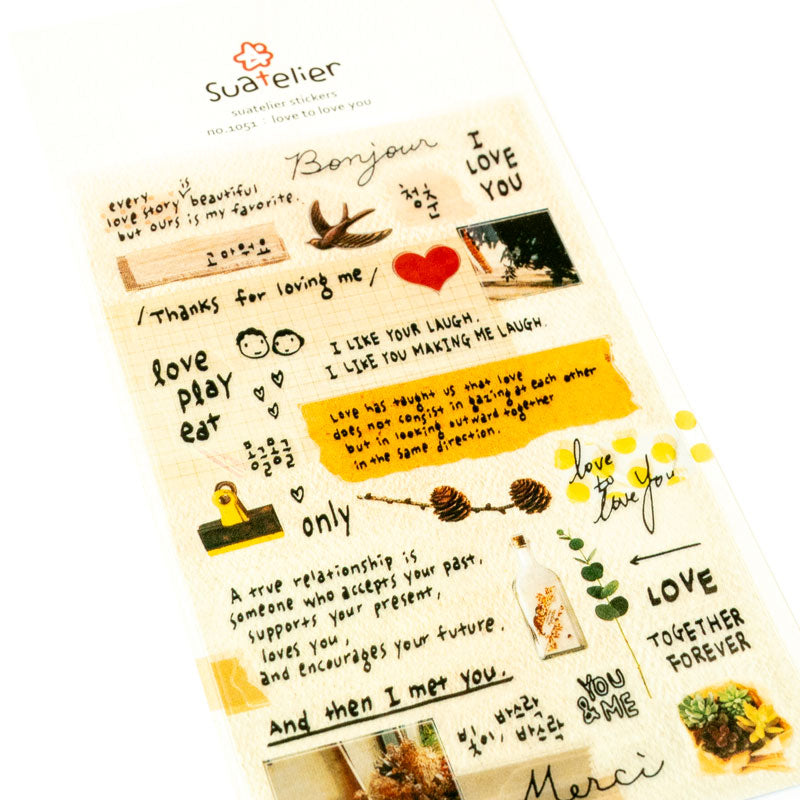 suatelier
suatelier stickers
no.1051 : love to love you
Bonjour
I
LOVE
YOU
every is beautiful
love story
but ours is my favorite.
청춘
고마워요
/Thanks for loving me/
I LIKE YOUR LAUGH.
I LIKE YOU MAKING ME LAUGH.
love
play
eat
Love has taught us that love
does not consist in gazing at each other
but in looking outward together
in the same direction.
몽글몽글
only
love
to
love You
A true relationship is
someone who accepts your past,
supports your present,
loves you,
and encourages your future.
LOVE
TOGETHER
FOREVER
And then I met you.
YOU
& ME
빛이, 바스락
바스락
Merci